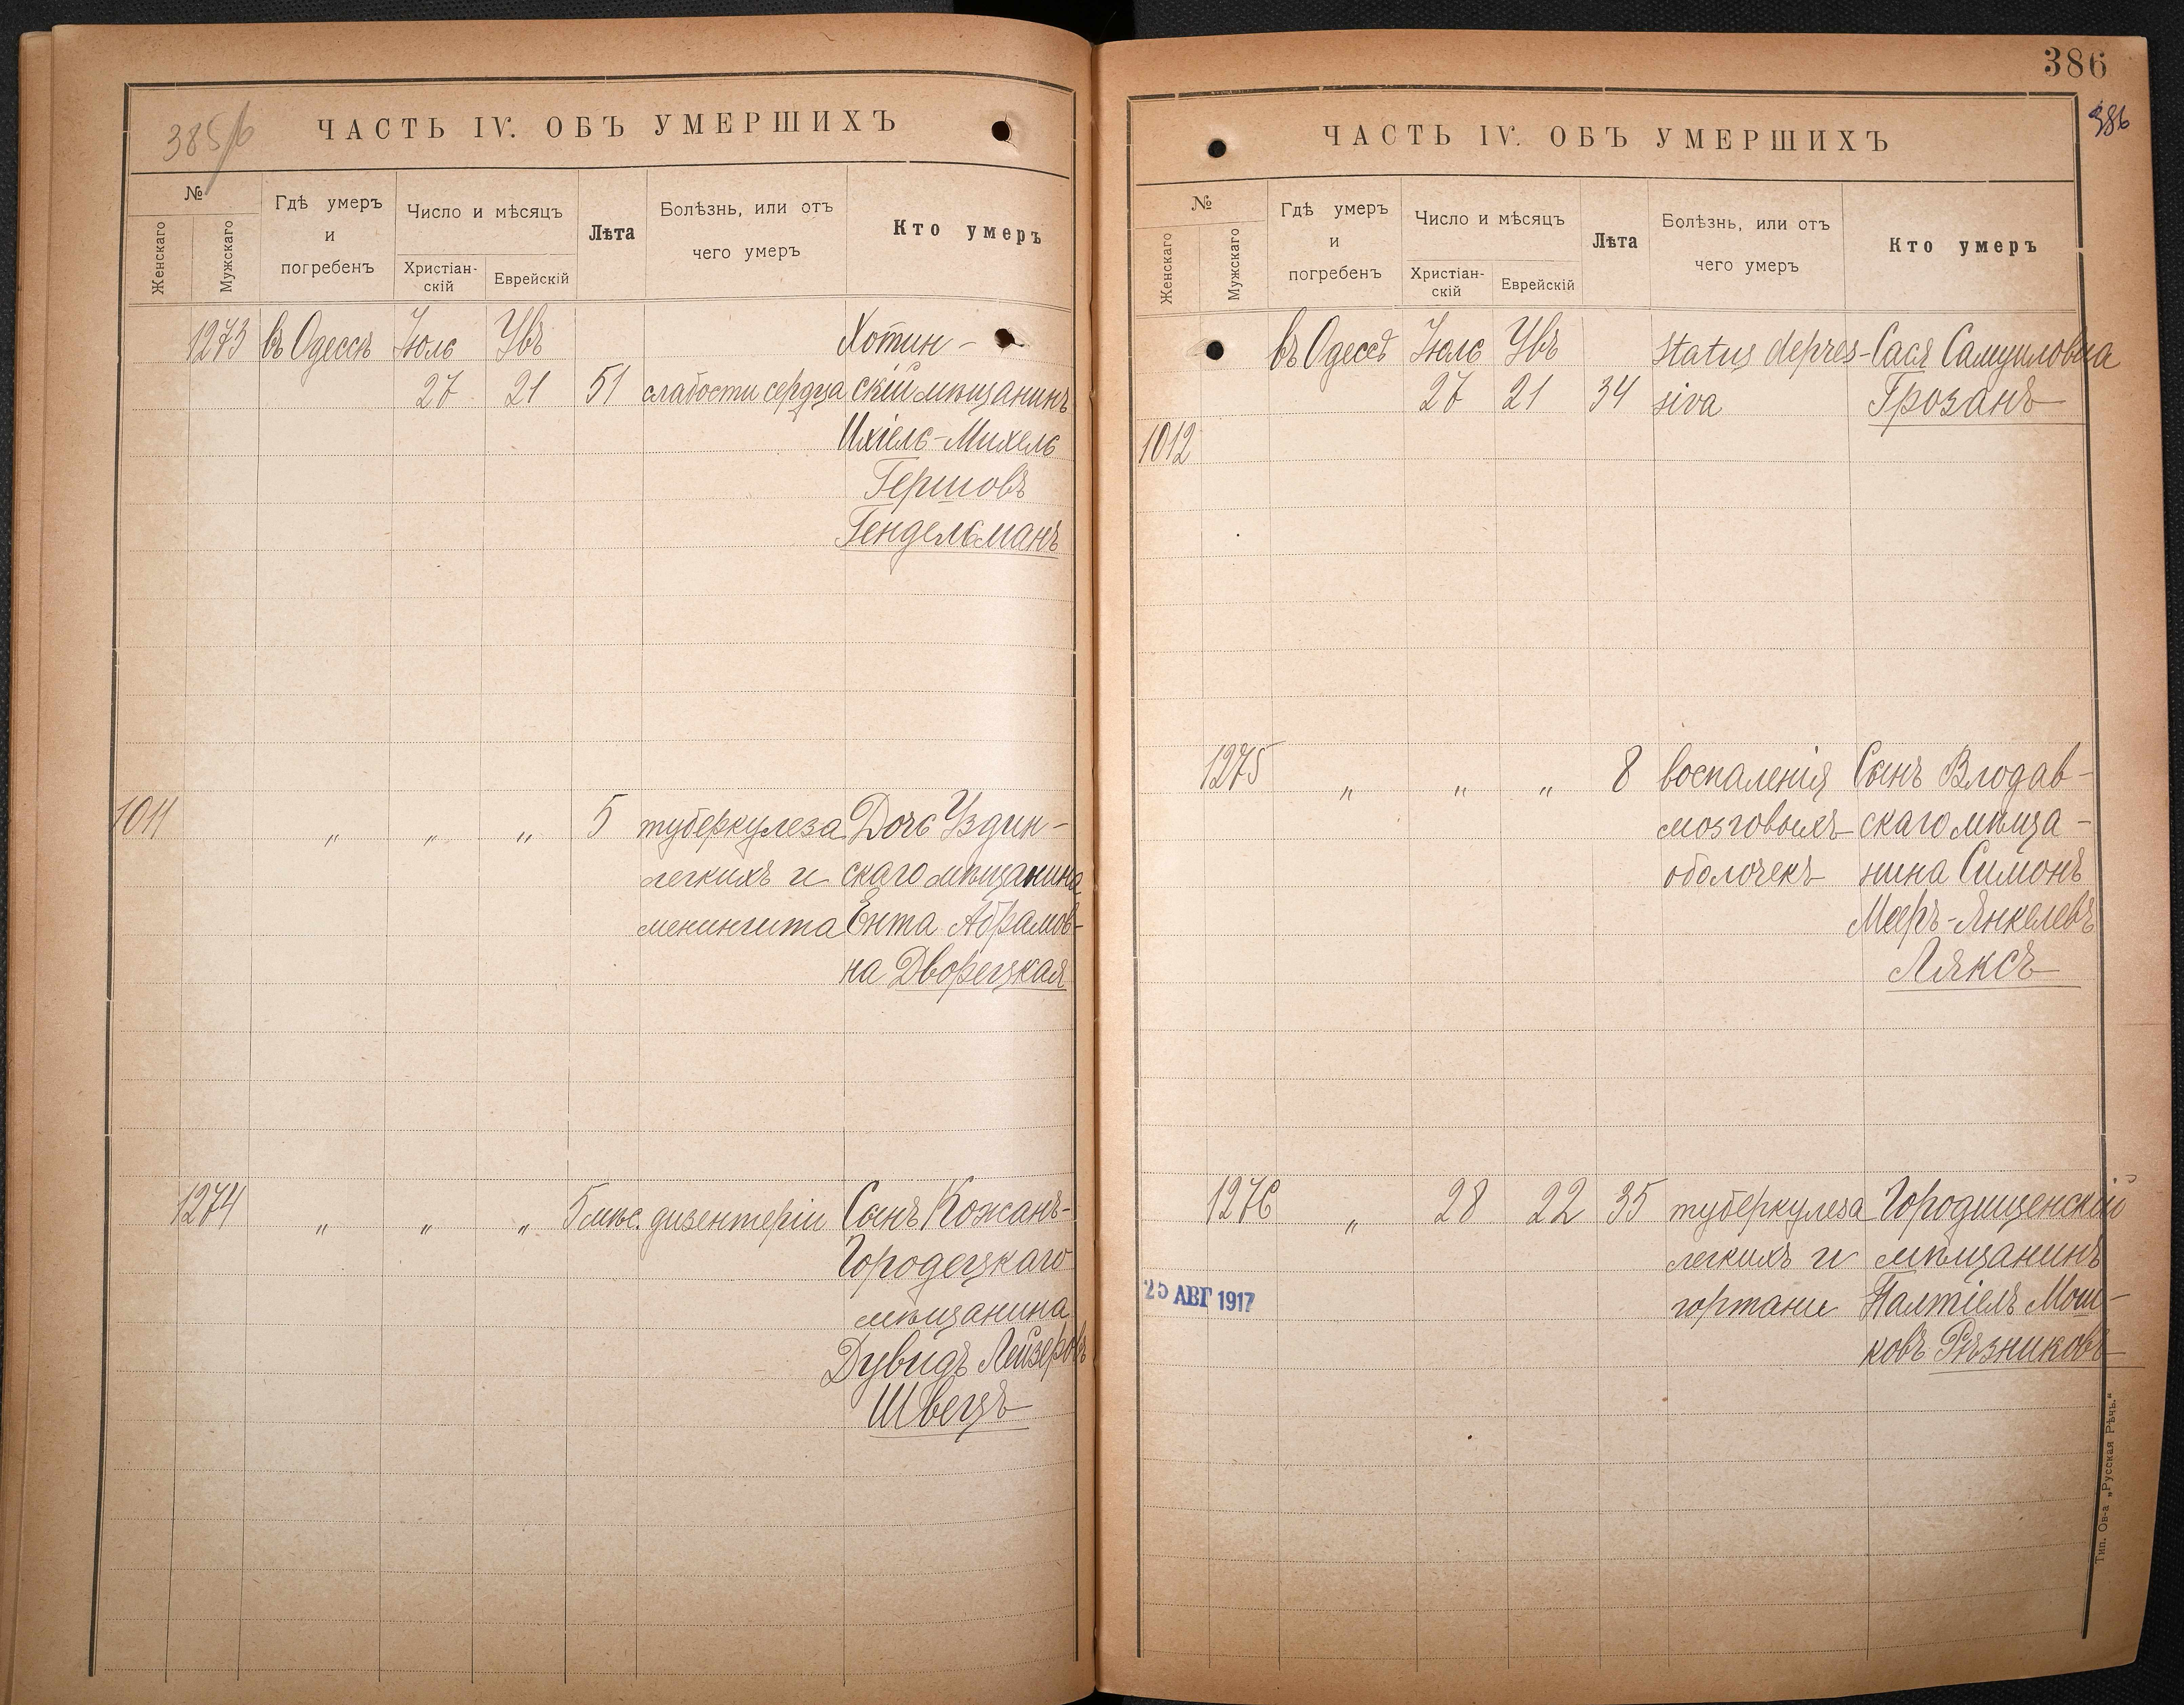 385/б
ЧАСТЬ IV. ОБЪ УМЕРШИХЪ
№
Женскаго
Мужскаго
Гдѣ умеръ
и
погребенъ
Число и мѣсяцъ
Христіан-
скій
Еврейскій
Лѣта
Болѣзнь, или отъ
чего умеръ
Кто умеръ
1273 въ Одессѣ Іюль Увъ Хотин-
27 21 51 слабости сердца скій мѣщанинъ
Ихіель-Михель
Гершовъ
Гендельманъ
1011 „ „ „ 5 туберкулеза Дочь Уздин-
легкихъ и скаго мѣщанина
менингита Ента Абрамов-
на Дворецкая
1274 „ „ „ 5 мѣс. дизентеріи Сынъ Кожанъ-
Городецкаго
мѣщанина
Дувидъ Лейзеровъ
Швецъ
386
386
ЧАСТЬ IV. ОБЪ УМЕРШИХЪ
№
Женскаго
Мужскаго
Гдѣ умеръ
и
погребенъ
Число и мѣсяцъ
Христіан-
скій
Еврейскій
Лѣта
Болѣзнь, или отъ
чего умеръ
Кто умеръ
въ Одессѣ Іюль Увъ status depres- Сася Самуиловна
27 21 34 siva Грозанъ
1012
1275 „ „ „ 8 воспаленія Сынъ Влодав-
мозговыхъ скаго мѣща-
оболочекъ нина Симонъ
Мееръ-Янкелевъ
Ляксъ
1276 „ 28 22 35 туберкулеза Городищенскій
легкихъ и мѣщанинъ
гортани Палтіель Мош-
ковъ Рѣзниковъ
25 АВГ 1917
Тип. Ов-а „Русская Рѣчь.“